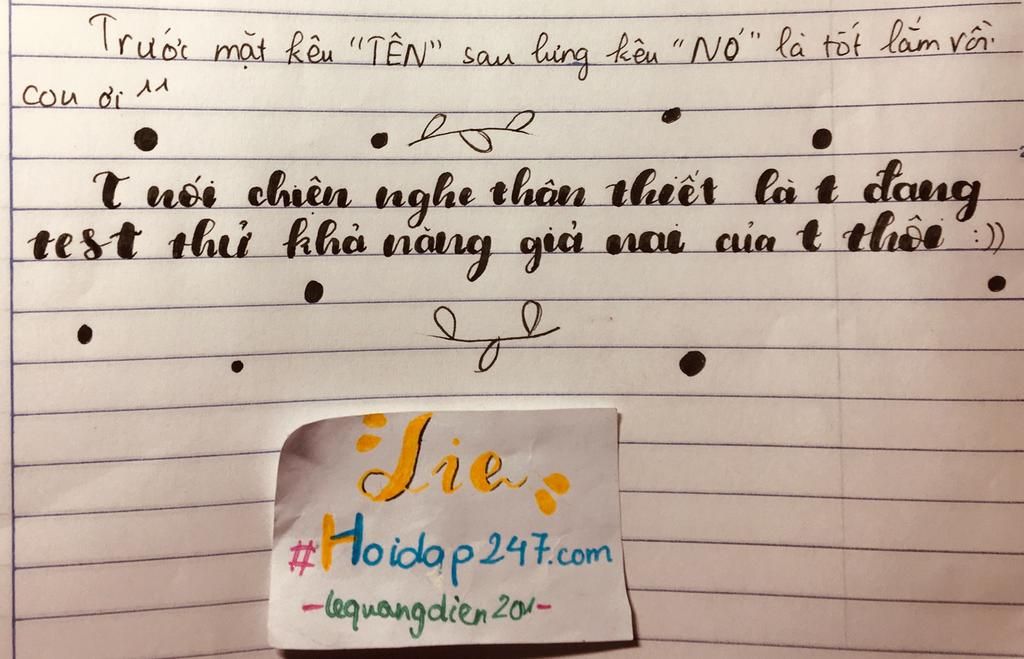 Trước mặt kêu "TÊN" sau lưng kêu "NÓ" là tốt lắm rồi
con ơi ^^
T nói chiện nghe thân thiết là t đang
test thử khả năng giả nai của t thôi :))
Lie
#Hoidap247.com
-lequangdien201-